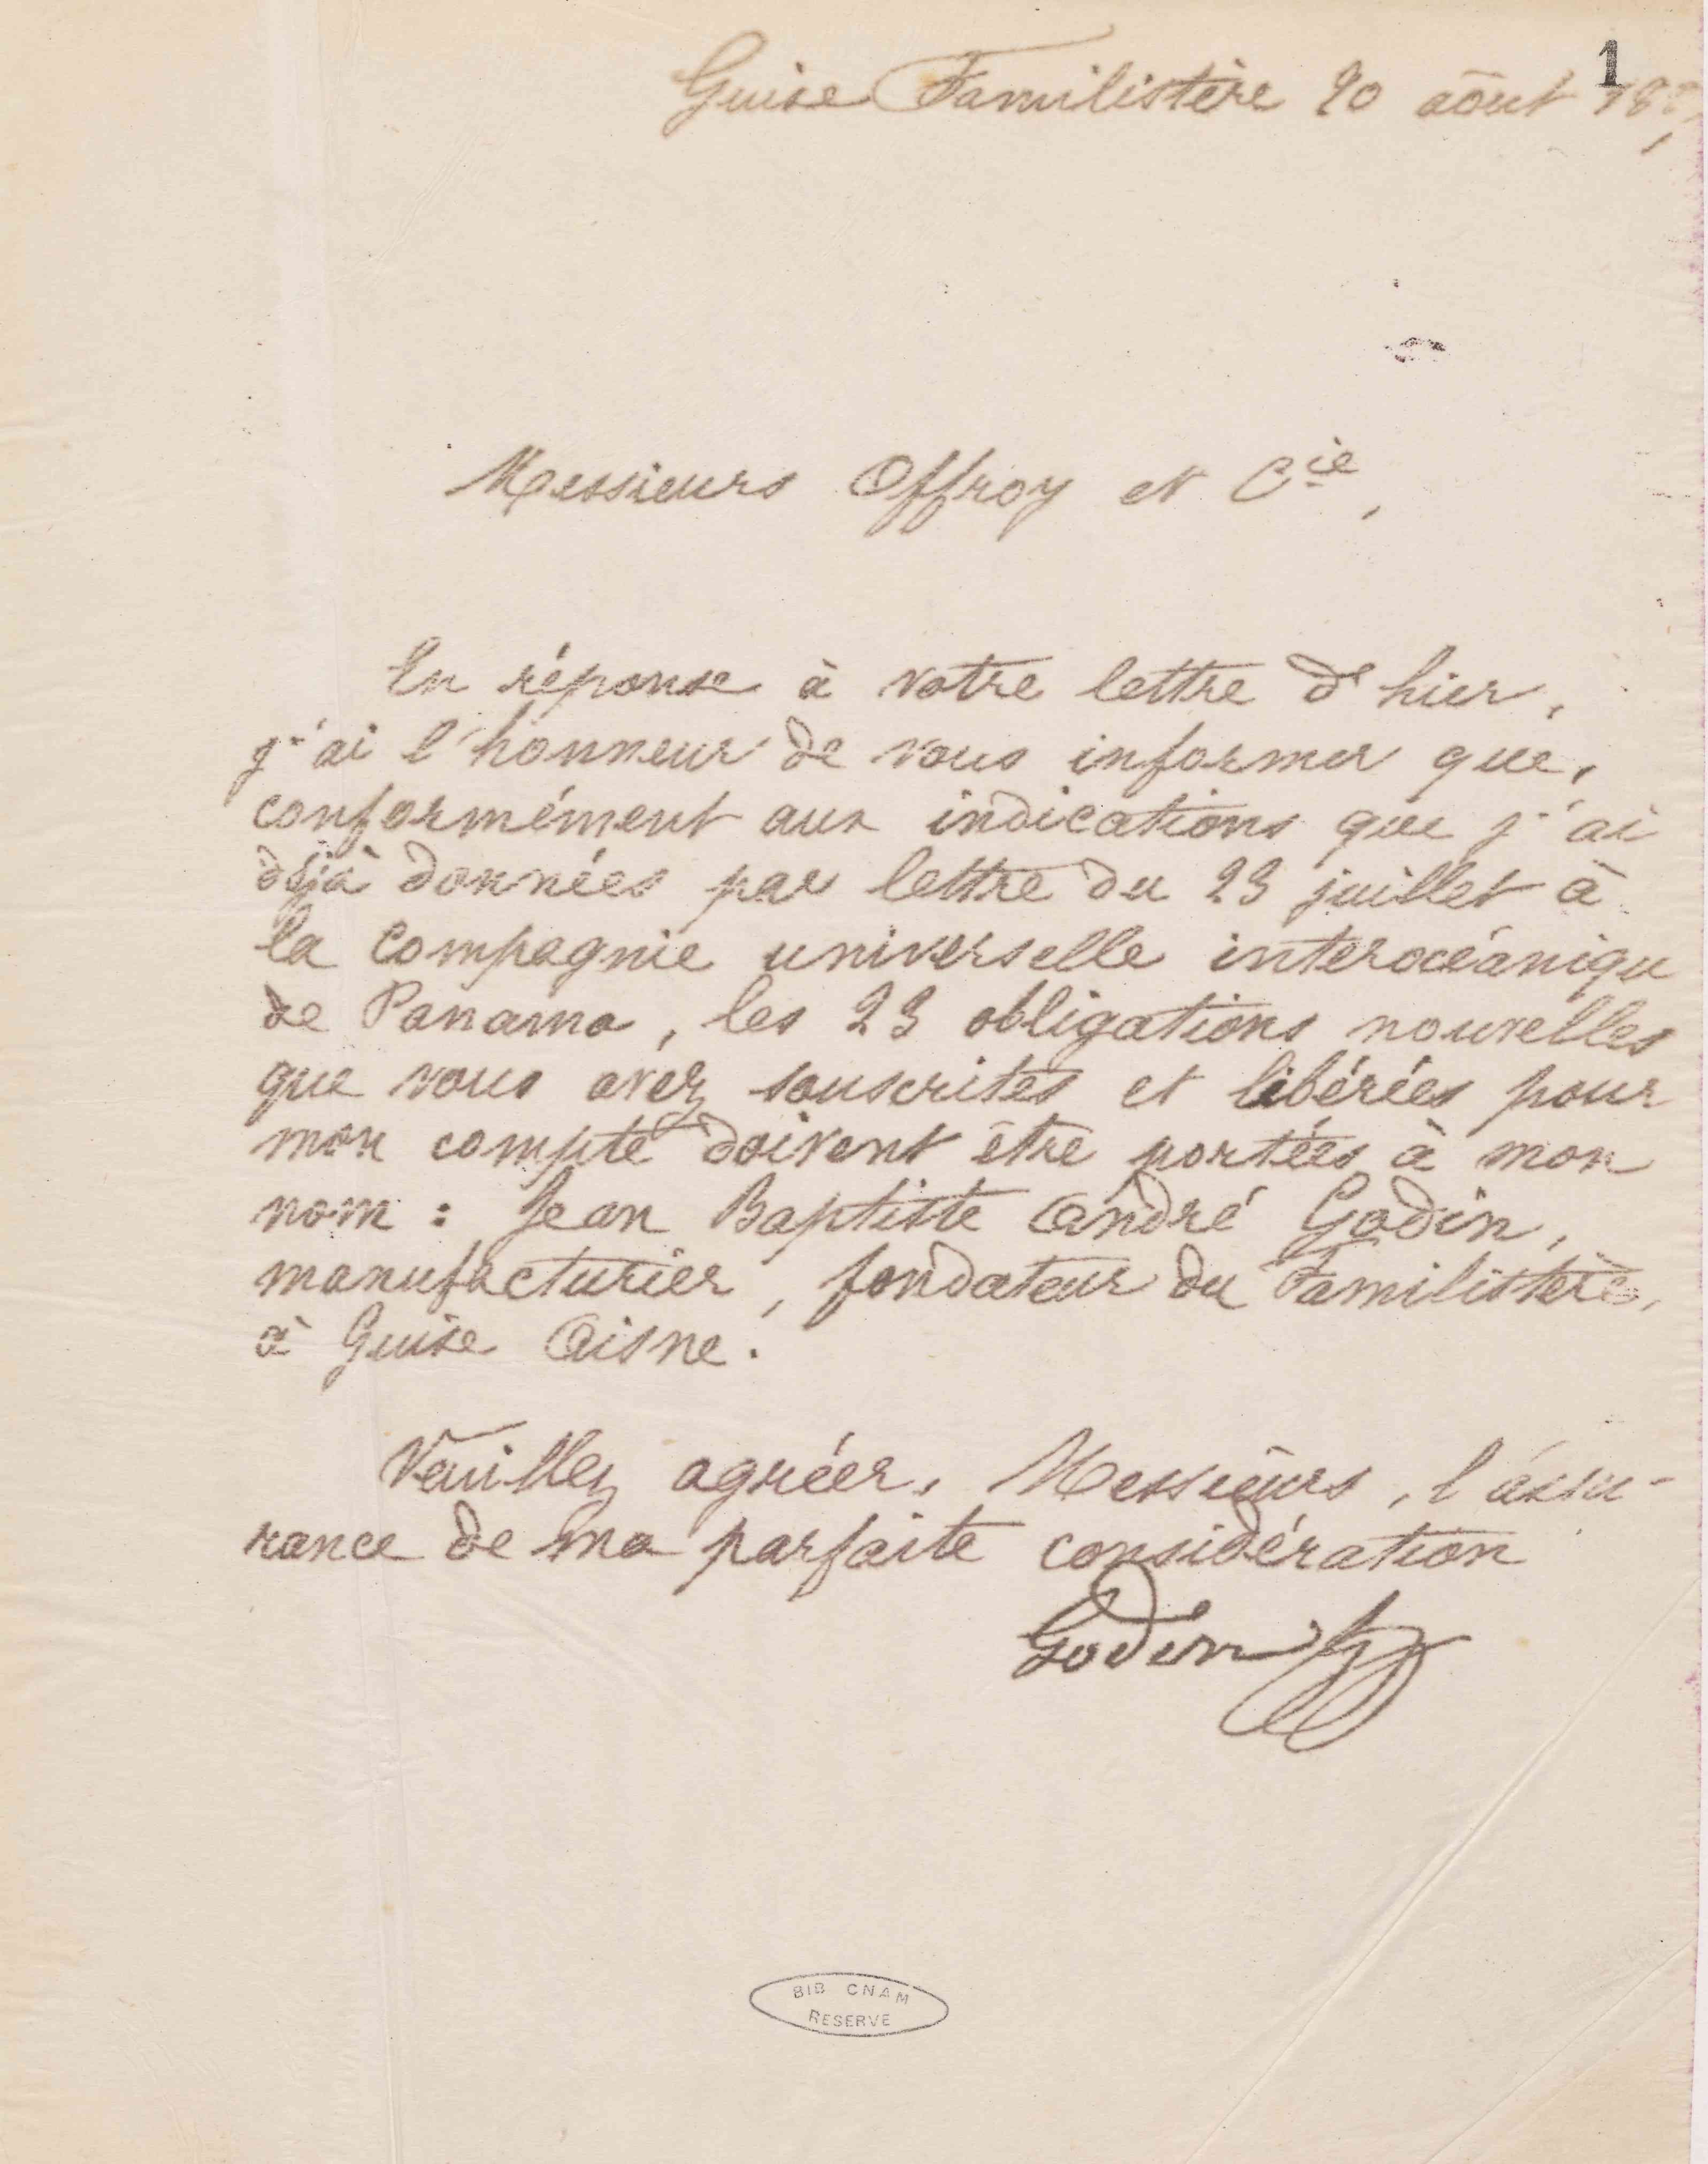 1
Guise Familistère 20 août
Messieurs Offroy et Cie,
En réponse à votre lettre d'hier,
j'ai l'honneur de vous informer que,
conformément aux indications que j'ai
déjà données par lettre du 23 juillet à
la Compagnie universelle interocéaniqu
de Panama, les 23 obligations nouvelles
que vous avez souscrites et libérées pour
mon compte doivent être portées à mon
nom : Jean Baptiste André Godin,
manufacturier, fondateur du Familistère,
à Guise Aisne.
Veuillez agréer, Messieurs, l'assu-
rance de ma parfaite considération
Godin
BIB CNAM
RESERVE